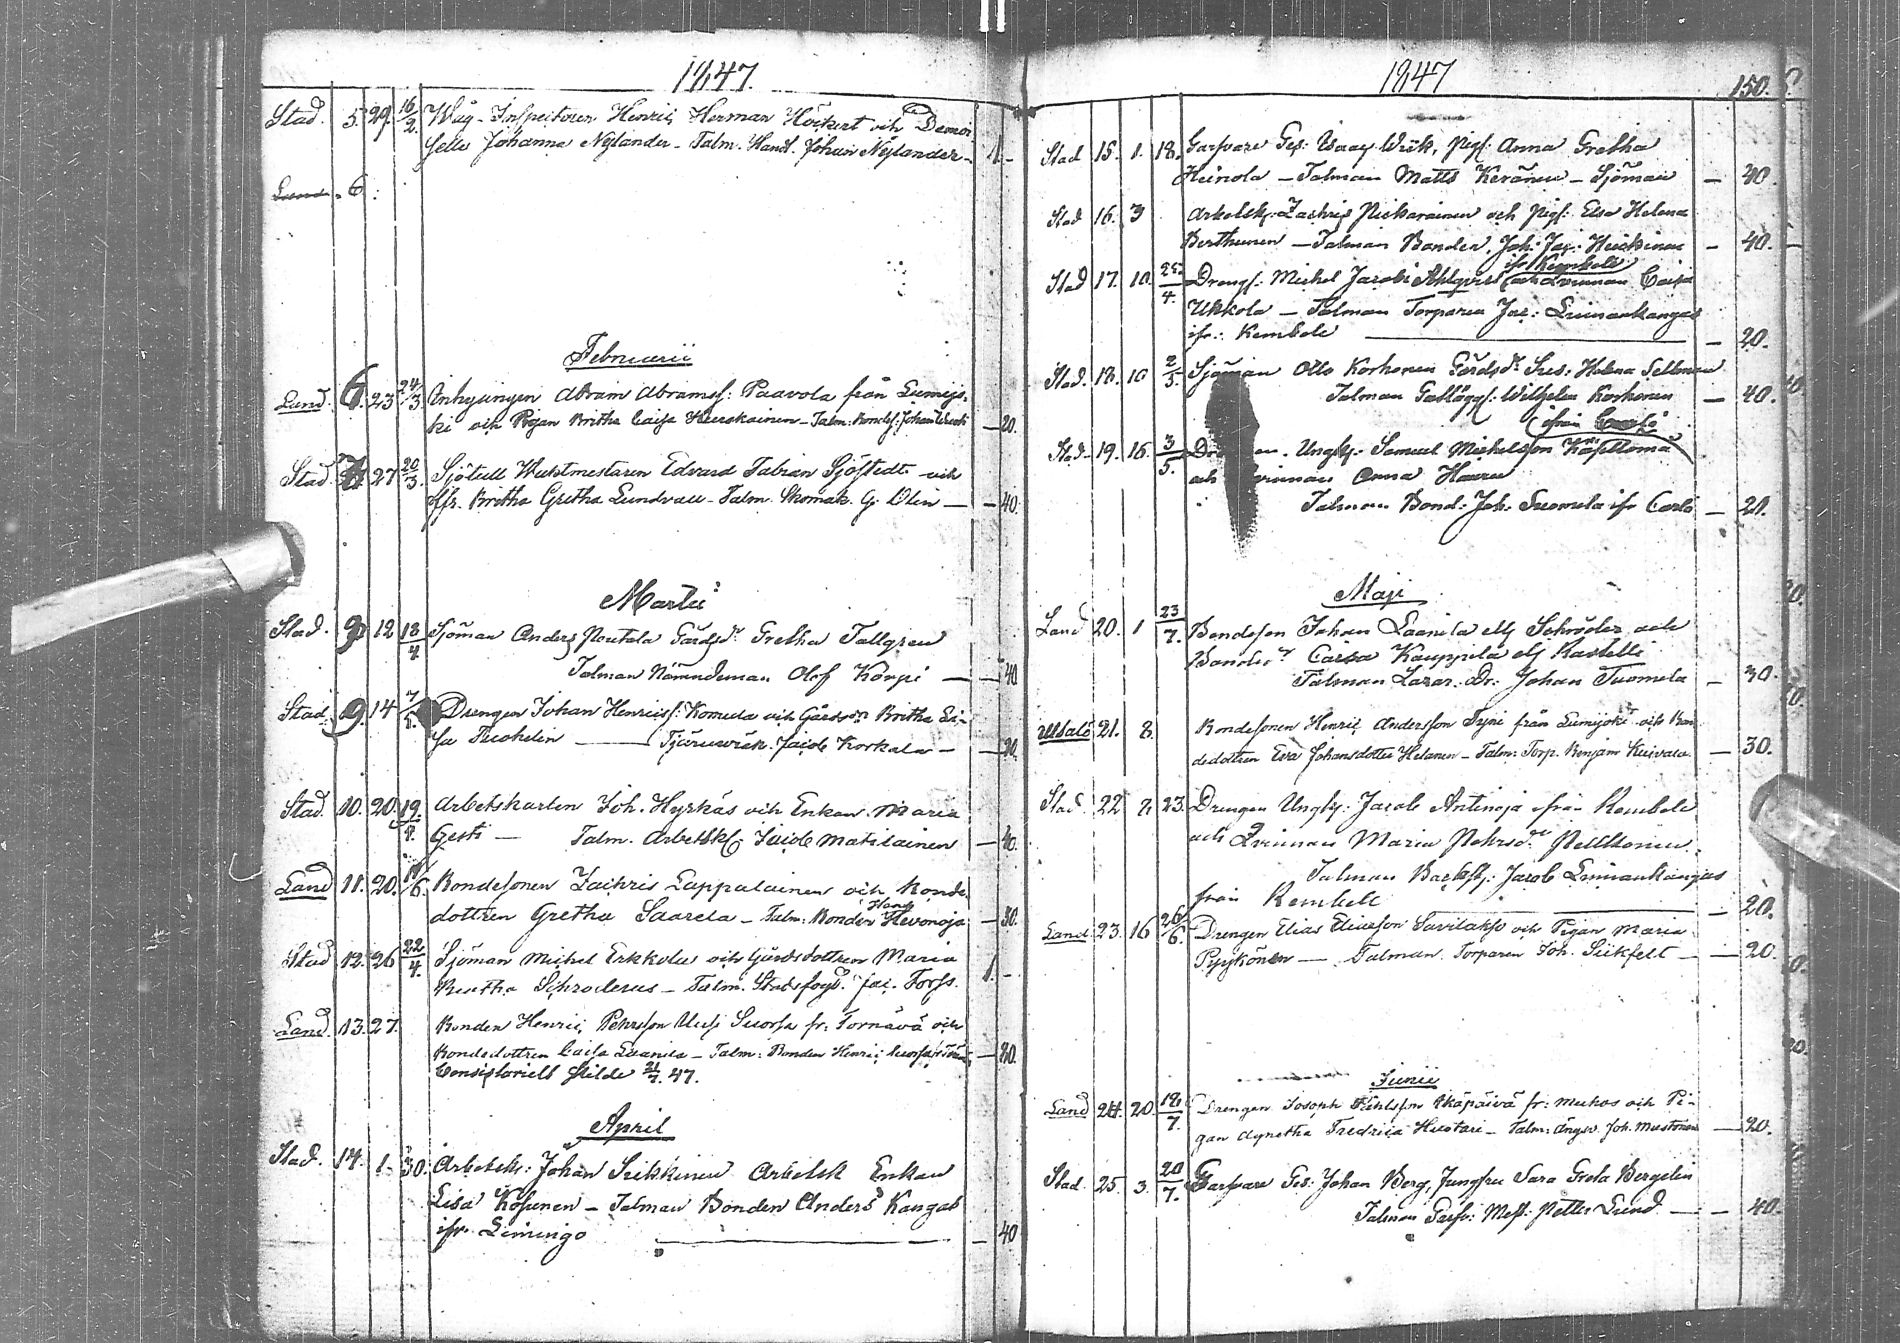 1847.
Stad. 5. 29. 16/2. Wåg-Inspectoren Henric Herman Höckert och Demoi
selle Johanna Nylander - Talm. Handl. Johan Nylander - 1.-
Land. 6.
Februarii
Land. 6. 23 24/3. Inhysingen Abram Abramss: Paavola från Lumijo-
ki och Pigan Britha Caisa - Talm: Bondes: Johan - 20.
Stad. 7. 27 20/3. Sjötull Waktmestaren Edvard Fabian Sjöstedt och
Jfr. Britha Gretha Lundvall - Talm. Skomak. G. Olin - 40.
Martii
Stad. 9 12 18/4 Sjöman Anders Poutala Gårdsdr Gretha Tallgren
Talman Nämndeman Olof Korpi - 40
Stad. 9 14 Drengen Johan Henricss: Komula och Gårdsdn Britha Li-
sa - Jacob Korkala - 20.
Stad. 10. 20. 19. Arbetskarlen Joh. Hyrkäs och Enkan Maria
Gerts - Talm. Arbetsk. Jacob Matilainen - 40.
Land 11. 20. /6. Bondesonen Zachris Lappalainen och Bonde
dottren Gretha Saarela - Talm: Bonden Hans Hevonoja - 30.
Stad 12. 26 22/4. Sjöman Michel Erkkola och Gårdsdottren Maria
Britha Schroderus - Talm. Stadsfogd. Jac. Forss. 1.-
Land. 13. 27. Bonden Henric Pehrsson Uusi Suorsa fr: Tornävä och
Bondedottren Caisa Laanila - Talm: Bonden Henric Suorsa - 20.
Consistoriets Skilde 21/7. 47.
April
Stad. 14. 1. 30. Arbetsk: Johan Sikkinen Arbetsk Enkan
Lisa Kosunen - Talman Bonden Anders Kangas
ifr. Limingo - 40
1847 150.
Stad 15. 1. 18. Garfvare Ges: Isaac Wiik, Pig: Anna Gretha
Heinola - Talman Matts Keränen - Sjöman - 40.
Stad 16. 3 Arbetsk: Zachris och Pig: Elsa Helena
Berthunen - Talman Bonden, Joh: Jac: Heickinen - 40.
ifr Kembele
Stad 17. 10. 25/4. Drengs: Michel Jacobs Ahlqvist och qvinnan Caisa
Ukkola - Talman Torparen Jac: Liimankangas
ifr: Kembele - 20.
Stad. 18. 10 2/5. Sjöman Otto Korhonen Gårdsdr Sus: Helena Sellman
Talman Wilhelm Korhonen - 40.
ifrån Carlö
Stad. 19. 16. 3/5. Ungk: Samuel Michelsson
och qvinnan Anna Haaru
Talman Bond: Joh. Suomela ifr Carlö - 20.
Maji
Land 20. 1 23/7. Bondeson Johan Laanila elj Schröder och
Bondedr Carin Kauppila elj Kastelli
Talman Lazar: Dr: Johan Tuomela - 30.
Uhlalö 21. 8. Bondesonen Henric Andersson Tyni från Lumijoki och Bon
dedottren Eva Johansdotter Helanen - Talm: Torp. Benjam Kuivala - 30.
Stad. 22 8 23. Drengen Ungk: Jacob Antinoja från Kembele
och Qvinnan Maria Pehrsdr Pelttonen
Talman Backsk: Jacob Liimankangas
från Kembele - 20.
Land. 23. 16 26/6. Drengen Elias Eliasson Savilakso och Pigan Maria
Pyykönen - Talman Torparen Joh. Siikfelt - 20.
Junii
Land 24. 20. 18/7. Drengen Josoph Pehlsson Ikäpäivä fr: Muhos och Pi-
gan Agnetha Fredrica Huotari - Talm: Joh. Mustonen - 20.
Stad. 25. 3. 20/7. Garfvare Ges: Johan Berg, Jungfru Sara Greta Bergelin
Talman Garfv: Mest: Petter Lund - 40.